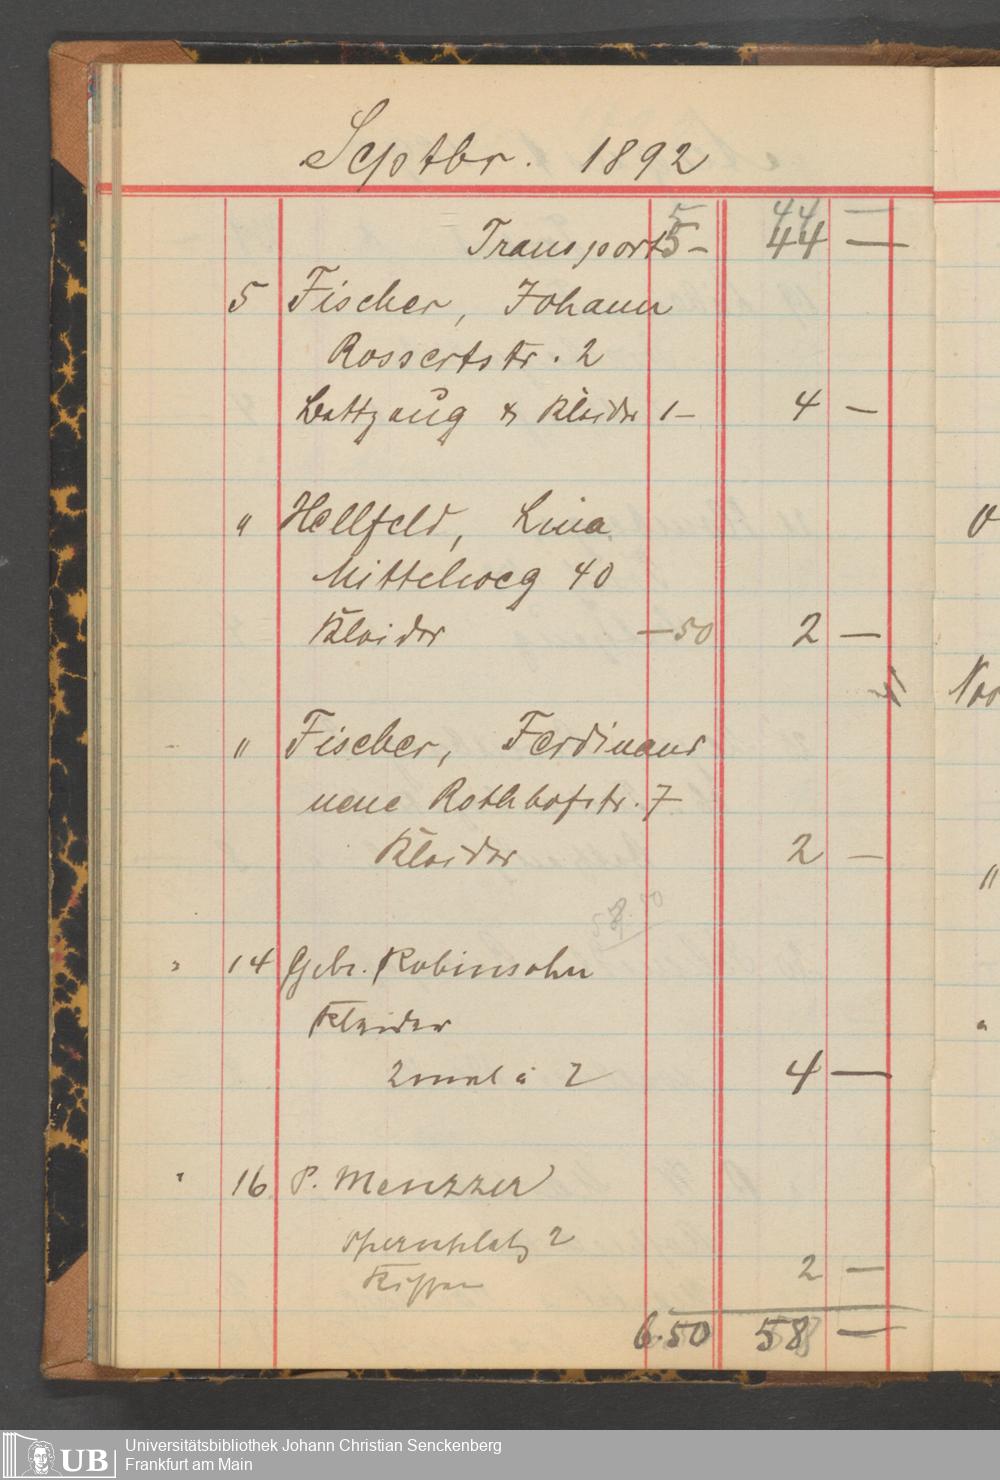 Septbr. 1892
5 44 —
Transport 5 – 44 —
5 Fischer, Johann
Rossertstr. 2
Bettzeug & Kleider 1 – 4 —
" Hellfeld, Lina
Mittelweg 40
Kleider — 50 2 —
" Fischer, Ferdinand
neue Rothhofstr. 7
Kleider 2 —
14 Gebr. Robinsohn
Kleider
2 mal à 2 4 —
" 16 P. Menzzer
Opernplatz 2
Kissen 2 —
6.50 58 —
UB
Universitätsbibliothek Johann Christian Senckenberg
Frankfurt am Main